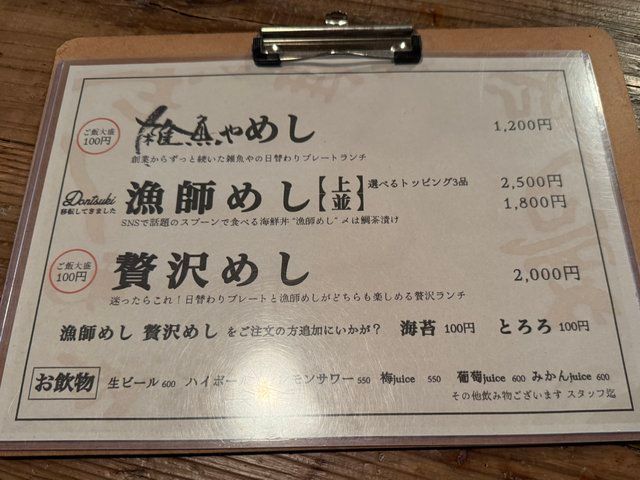 ご飯大盛
100円
雑魚やめし
1,200円
創業からずっと続いた雑魚やの日替わりプレートランチ
Dontsuki
移転してきました
漁師めし【上並】
選べるトッピング3品
2,500円
1,800円
SNSで話題のスプーンで食べる海鮮丼"漁師めし"〆は鯛茶漬け
ご飯大盛
100円
贅沢めし
2,000円
迷ったらこれ!日替わりプレートと漁師めしがどちらも楽しめる贅沢ランチ
漁師めし 贅沢めし をご注文の方追加にいかが? 海苔 100円 とろろ 100円
お飲物 生ビール 600 ハイボール モンサワー 550 梅juice 550 葡萄juice 600 みかんjuice 600
その他飲み物ございます スタッフ迄